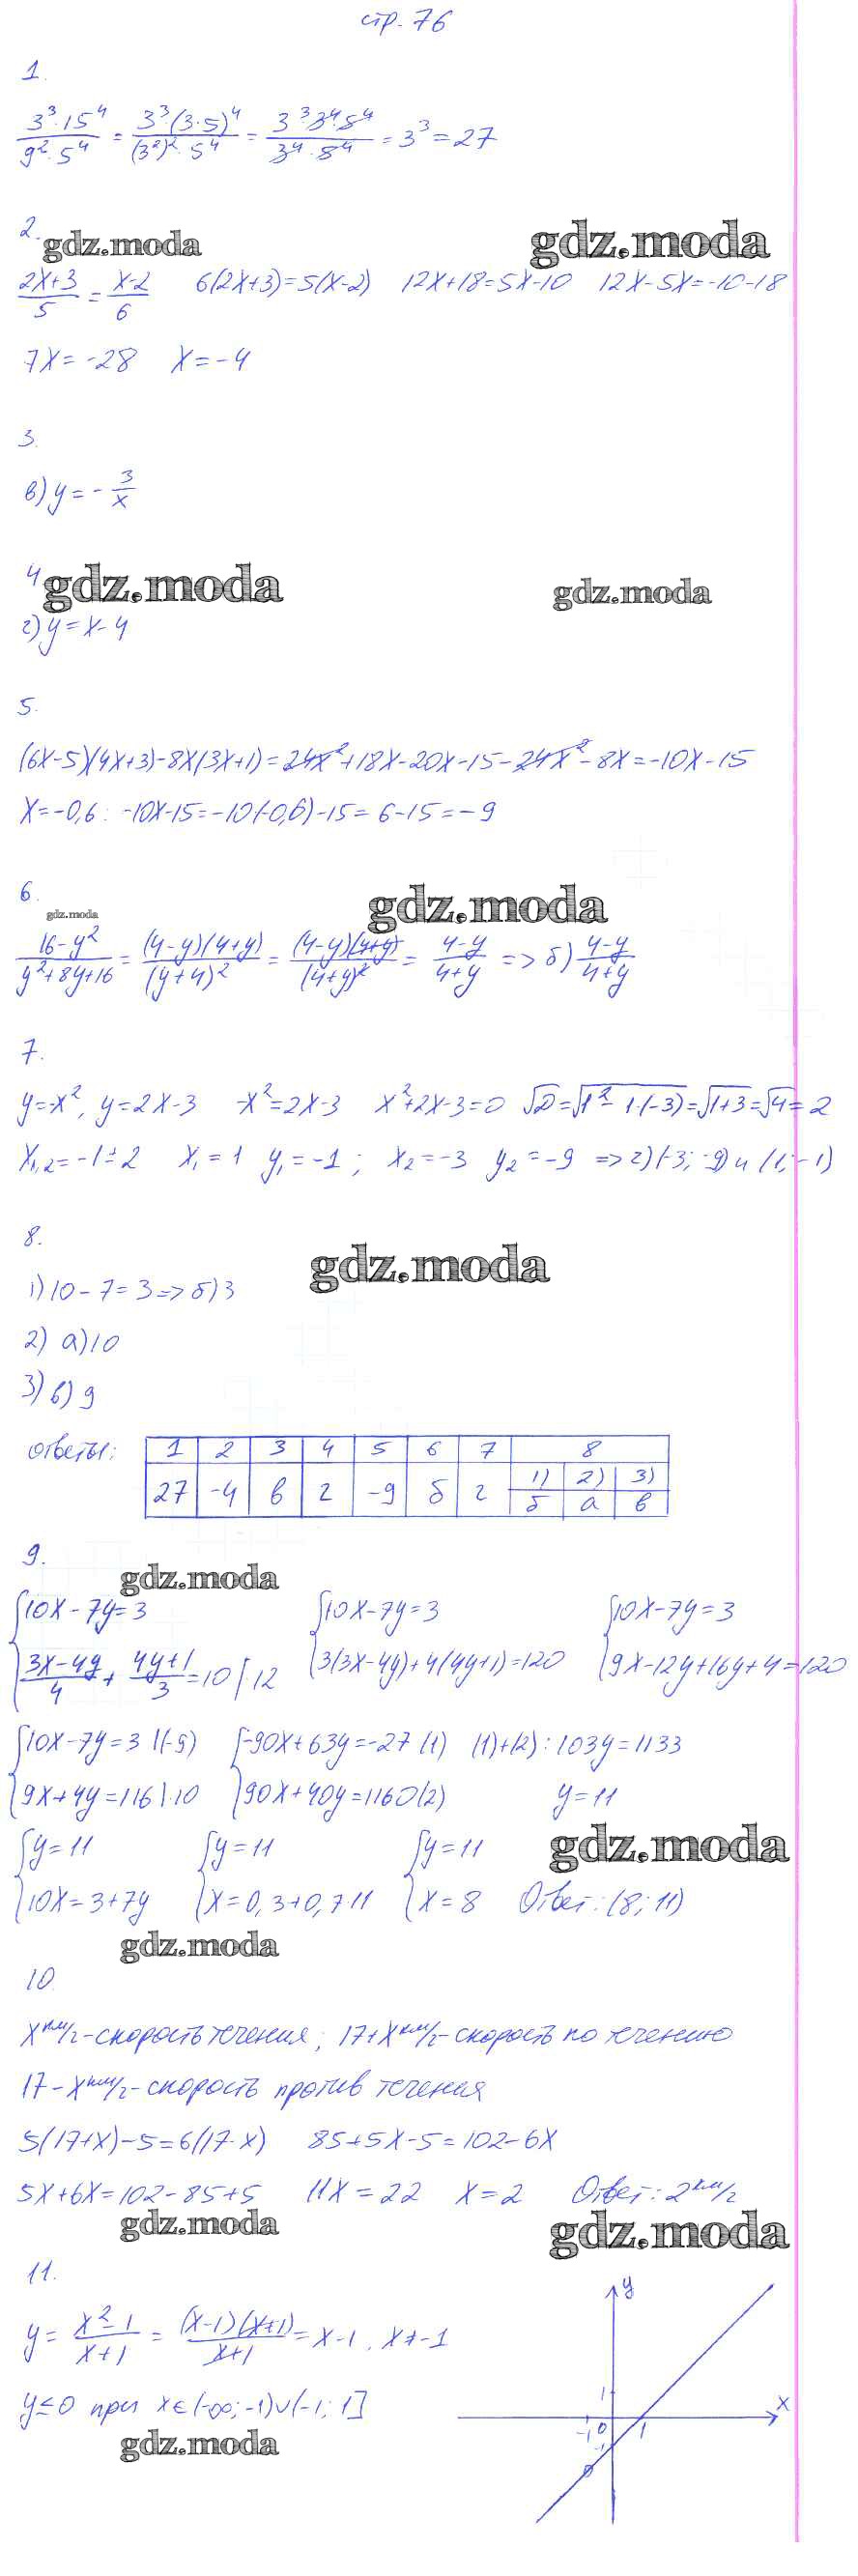 стр. 76
1.
3³·15⁴/9²·5⁴ = 3³·(3·5)⁴/(3²)²·5⁴ = 3³·3⁴·5⁴/3⁴·5⁴ = 3³ = 27
2.
gdz.moda gdz.moda
2x+3/5 = x-2/6 6(2x+3)=5(x-2) 12x+18=5x-10 12x-5x=-10-18
7x=-28 x=-4
3.
в) y = -3/x
4
gdz.moda gdz.moda
г) y=x-4
5.
(6x-5)(4x+3)-8x(3x+1)=24x²+18x-20x-15-24x²-8x=-10x-15
x=-0,6: -10x-15=-10·(-0,6)-15=6-15=-9
6.
gdz.moda gdz.moda
16-y²/y²+8y+16 = (4-y)(4+y)/(y+4)² = (4-y)(4+y)/(4+y)² = 4-y/4+y => б) 4-y/4+y
7.
y=-x², y=2x-3 -x²=2x-3 x²+2x-3=0 √D=√1²-1·(-3)=√1+3=√4=2
x₁,₂=-1±2 x₁=1 y₁=-1; x₂=-3 y₂=-9 => г) (-3; -9) и (1; -1)
8.
gdz.moda
1) 10-7=3 => б) 3
2) а) 10
3) в) 9
ответы: 1 2 3 4 5 6 7 8
27 -4 в г -9 б г 1) 2) 3)
б а в
9.
gdz.moda
10x-7y=3 10x-7y=3 10x-7y=3
3x-4y/4 + 4y+1/3 = 10 |·12 3(3x-4y)+4(4y+1)=120 9x-12y+16y+4=120
10x-7y=3 |·(-9) -90x+63y=-27 (1) (1)+(2): 103y=1133
9x+4y=116 |·10 90x+40y=1160 (2) y=11
y=11 y=11 y=11
gdz.moda
10x=3+7y x=0,3+0,7·11 x=8 Ответ: (8; 11)
gdz.moda
10.
x км/г - скорость течения; 17+x км/г - скорость по течению
17-x км/г - скорость против течения
5(17+x)-5=6(17-x) 85+5x-5=102-6x
5x+6x=102-85+5 11x=22 x=2 Ответ: 2 км/г
gdz.moda gdz.moda
11.
y = x²-1/x+1 = (x-1)(x+1)/x+1 = x-1, x≠-1
y≤0 при x∈(-∞; -1)∪(-1; 1]
gdz.moda
y
1
x
-1 0 1
-1